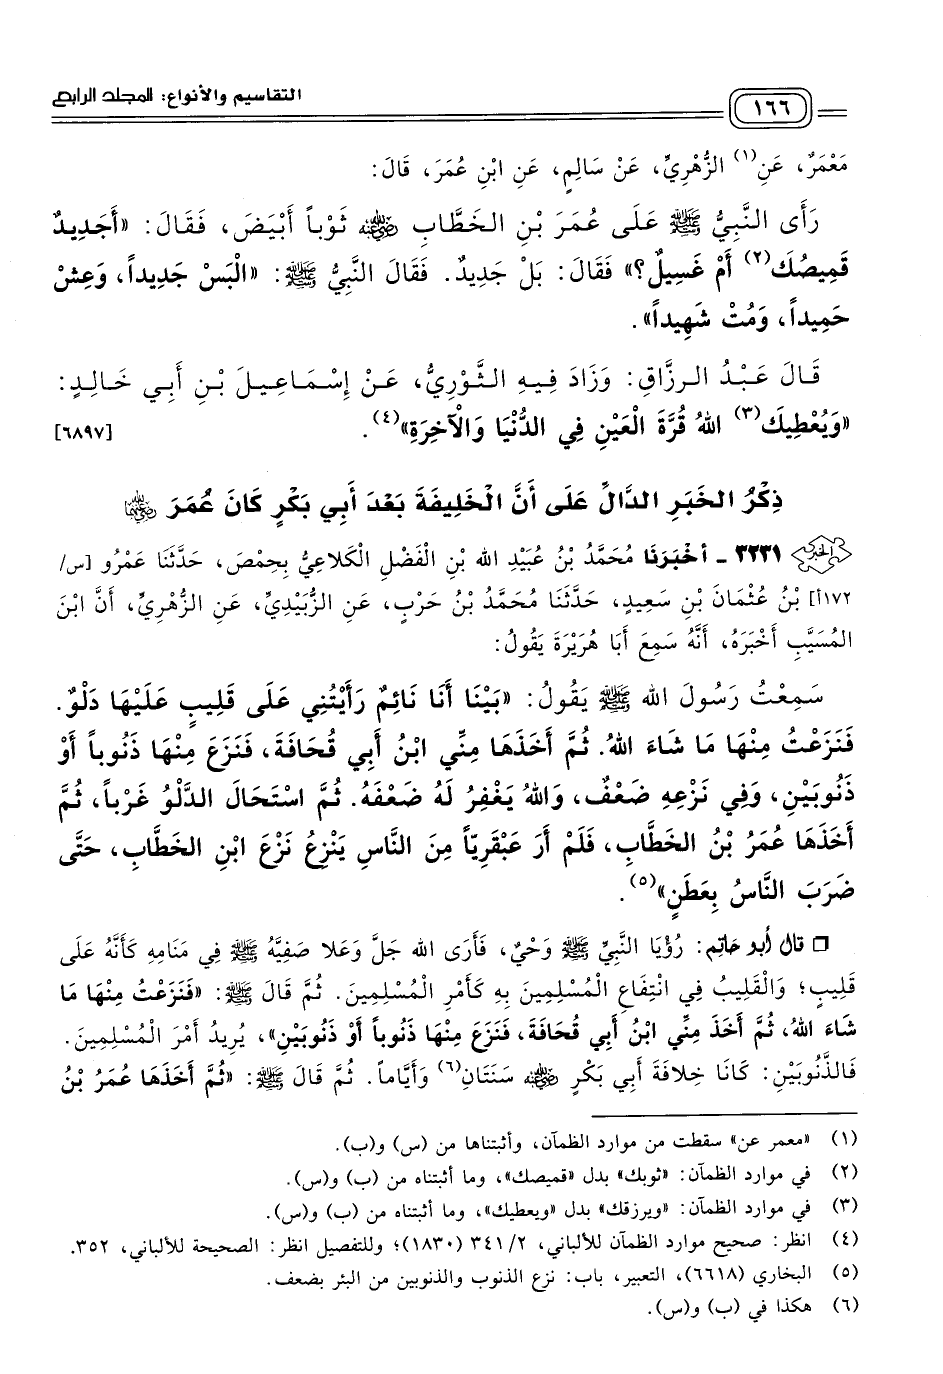 التقاسيم والأنواع: المجلد الرابع
١٦٦
مَعْمَرٌ، عَنِ(١) الزُّهْرِيِّ، عَنْ سَالِمٍ، عَنِ ابْنِ عُمَرَ، قَالَ:
رَأَى النَّبِيُّ ﷺ عَلَى عُمَرَ بْنِ الخَطَّابِ رضي الله عنه ثَوْباً أَبْيَضَ، فَقَالَ: «أَجَدِيدٌ
قَمِيصُكَ(٢) أَمْ غَسِيلٌ؟» فَقَالَ: بَلْ جَدِيدٌ. فَقَالَ النَّبِيُّ ﷺ: «الْبَسْ جَدِيداً، وَعِشْ
حَمِيداً، وَمُتْ شَهِيداً».
قَالَ عَبْدُ الرزَّاقِ: وَزَادَ فِيهِ الثَّوْرِيُّ، عَنْ إِسْمَاعِيلَ بْنِ أَبِي خَالِدٍ:
«وَيُعْطِيكَ(٣) اللهُ قُرَّةَ الْعَيْنِ فِي الدُّنْيَا وَالْآخِرَةِ»(٤). [٦٨٩٧]
ذِكْرُ الخَبَرِ الدَّالِّ عَلَى أَنَّ الْخَلِيفَةَ بَعْدَ أَبِي بَكْرٍ كَانَ عُمَرَ رضي الله عنهما
الخبر ٣٢٣١ ـ أخْبَرَنَا مُحَمَّدُ بْنُ عُبَيْدِ الله بْنِ الْفَضْلِ الْكَلَاعِيُّ بِحِمْصَ، حَدَّثَنَا عَمْرُو [س/
١٧٢أ] بْنُ عُثْمَانَ بْنِ سَعِيدٍ، حَدَّثَنَا مُحَمَّدُ بْنُ حَرْبٍ، عَنِ الزُّبَيْدِيِّ، عَنِ الزُّهْرِيِّ، أَنَّ ابْنَ
المُسَيَّبِ أَخْبَرَهُ، أَنَّهُ سَمِعَ أَبَا هُرَيْرَةَ يَقُولُ:
سَمِعْتُ رَسُولَ الله ﷺ يَقُولُ: «بَيْنَا أَنَا نَائِمٌ رَأَيْتُنِي عَلَى قَلِيبٍ عَلَيْهَا دَلْوٌ.
فَنَزَعْتُ مِنْهَا مَا شَاءَ اللهُ. ثُمَّ أَخَذَهَا مِنِّي ابْنُ أَبِي قُحَافَةَ، فَنَزَعَ مِنْهَا ذَنُوباً أَوْ
ذَنُوبَيْنِ، وَفِي نَزْعِهِ ضَعْفٌ، وَاللهُ يَغْفِرُ لَهُ ضَعْفَهُ. ثُمَّ اسْتَحَالَ الدَّلْوُ غَرْباً، ثُمَّ
أَخَذَهَا عُمَرُ بْنُ الخَطَّابِ، فَلَمْ أَرَ عَبْقَرِيّاً مِنَ النَّاسِ يَنْزِعُ نَزْعَ ابْنِ الخَطَّابِ، حَتَّى
ضَرَبَ النَّاسُ بِعَطَنٍ»(٥).
❒ قال أبو حاتم: رُؤْيَا النَّبِيِّ ﷺ وَحْيٌ، فَأَرَى الله جَلَّ وَعَلا صَفِيَّهُ ﷺ فِي مَنَامِهِ كَأَنَّهُ عَلَى
قَلِيبٍ؛ وَالْقَلِيبُ فِي انْتِفَاعِ الْمُسْلِمِينَ بِهِ كَأَمْرِ الْمُسْلِمِينَ. ثُمَّ قَالَ ﷺ: «فَنَزَعْتُ مِنْهَا مَا
شَاءَ اللهُ، ثُمَّ أَخَذَ مِنِّي ابْنُ أَبِي قُحَافَةَ، فَنَزَعَ مِنْهَا ذَنُوباً أَوْ ذَنُوبَيْنِ»، يُرِيدُ أَمْرَ الْمُسْلِمِينَ.
فَالذَّنُوبَيْنِ: كَانَا خِلافَةَ أَبِي بَكْرٍ رضي الله عنه سَنَتَانِ(٦) وَأَيَّاماً. ثُمَّ قَالَ ﷺ: «ثُمَّ أَخَذَهَا عُمَرُ بْنُ
(١) «معمر عن» سقطت من موارد الظمآن، وأثبتناها من (س) و(ب).
(٢) في موارد الظمآن: «ثوبك» بدل «قميصك»، وما أثبتناه من (ب) و(س).
(٣) في موارد الظمآن: «ويرزقك» بدل «ويعطيك»، وما أثبتناه من (ب) و(س).
(٤) انظر: صحيح موارد الظمآن للألباني، ٣٤١/٢ (١٨٣٠)؛ وللتفصيل انظر: الصحيحة للألباني، ٣٥٢.
(٥) البخاري (٦٦١٨)، التعبير، باب: نزع الذنوب والذنوبين من البئر بضعف.
(٦) هكذا في (ب) و(س).